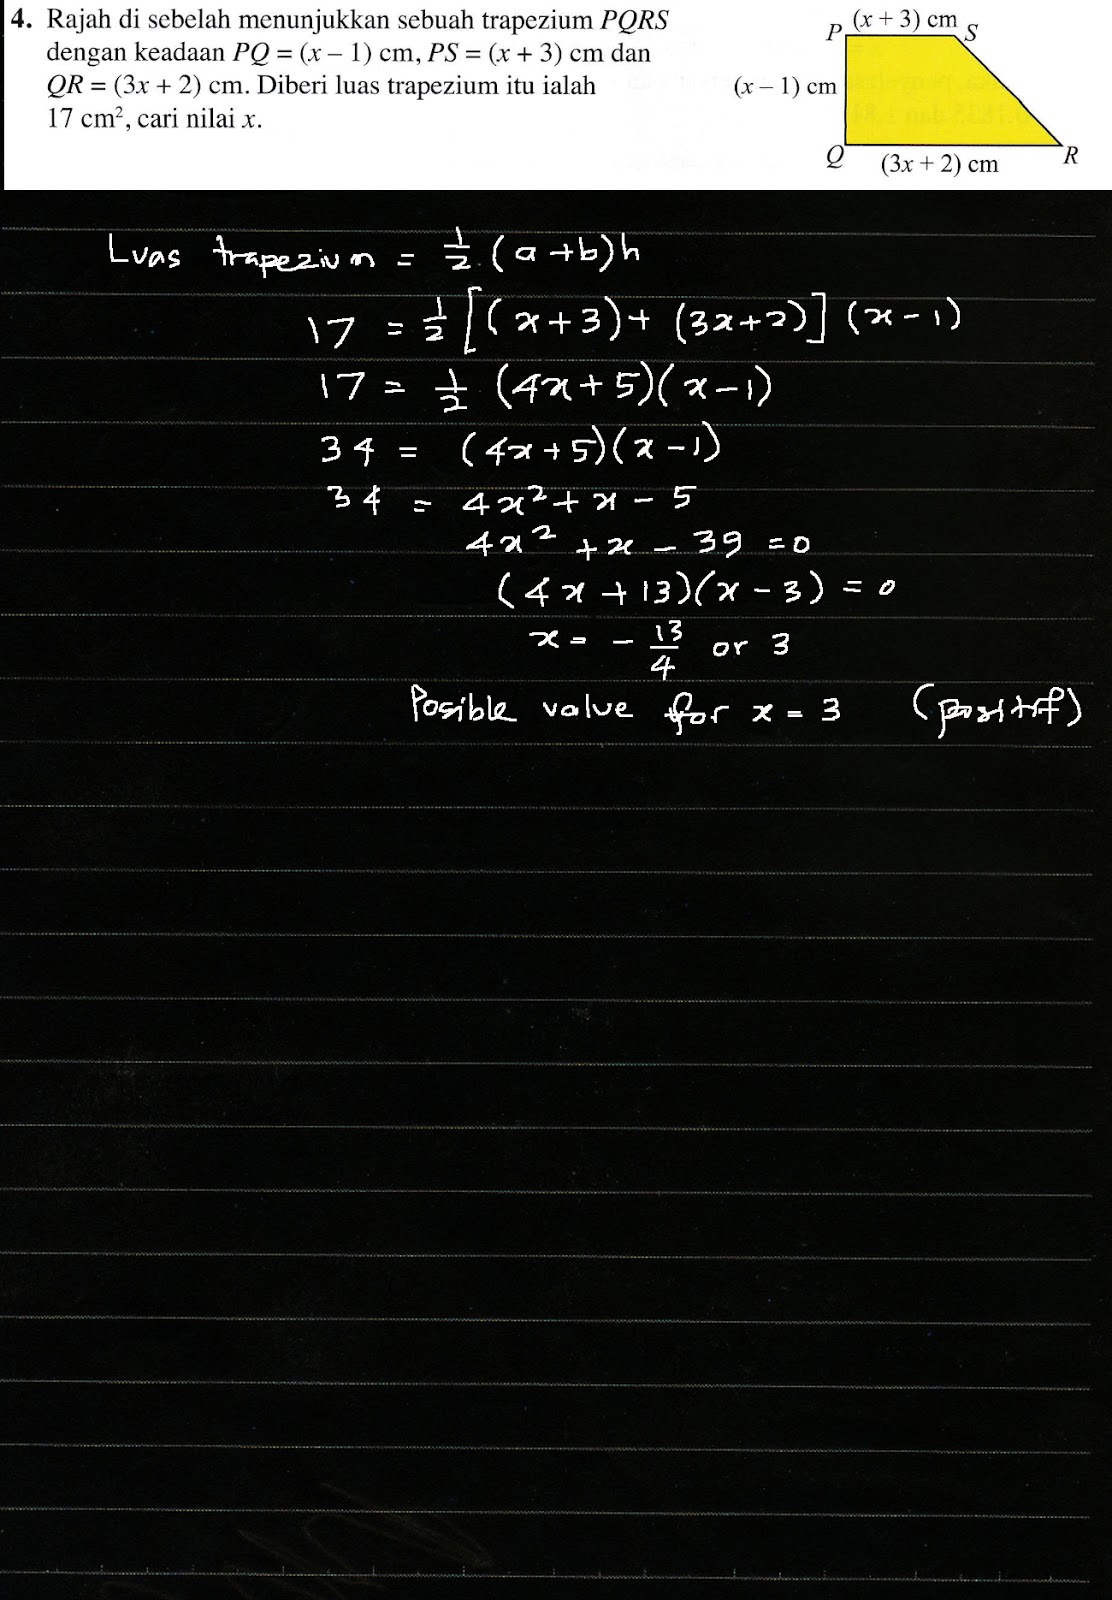 4. Rajah di sebelah menunjukkan sebuah trapezium PQRS
dengan keadaan PQ = (x – 1) cm, PS = (x + 3) cm dan
QR = (3x + 2) cm. Diberi luas trapezium itu ialah
17 cm², cari nilai x.
P (x + 3) cm S
(x – 1) cm
Q (3x + 2) cm R
Luas trapezium = 1/2 (a+b)h
17 = 1/2 [(x+3)+(3x+2)](x-1)
17 = 1/2 (4x+5)(x-1)
34 = (4x+5)(x-1)
34 = 4x²+x-5
4x²+x-39=0
(4x+13)(x-3)=0
x = -13/4 or 3
Posible value for x = 3 (positif)